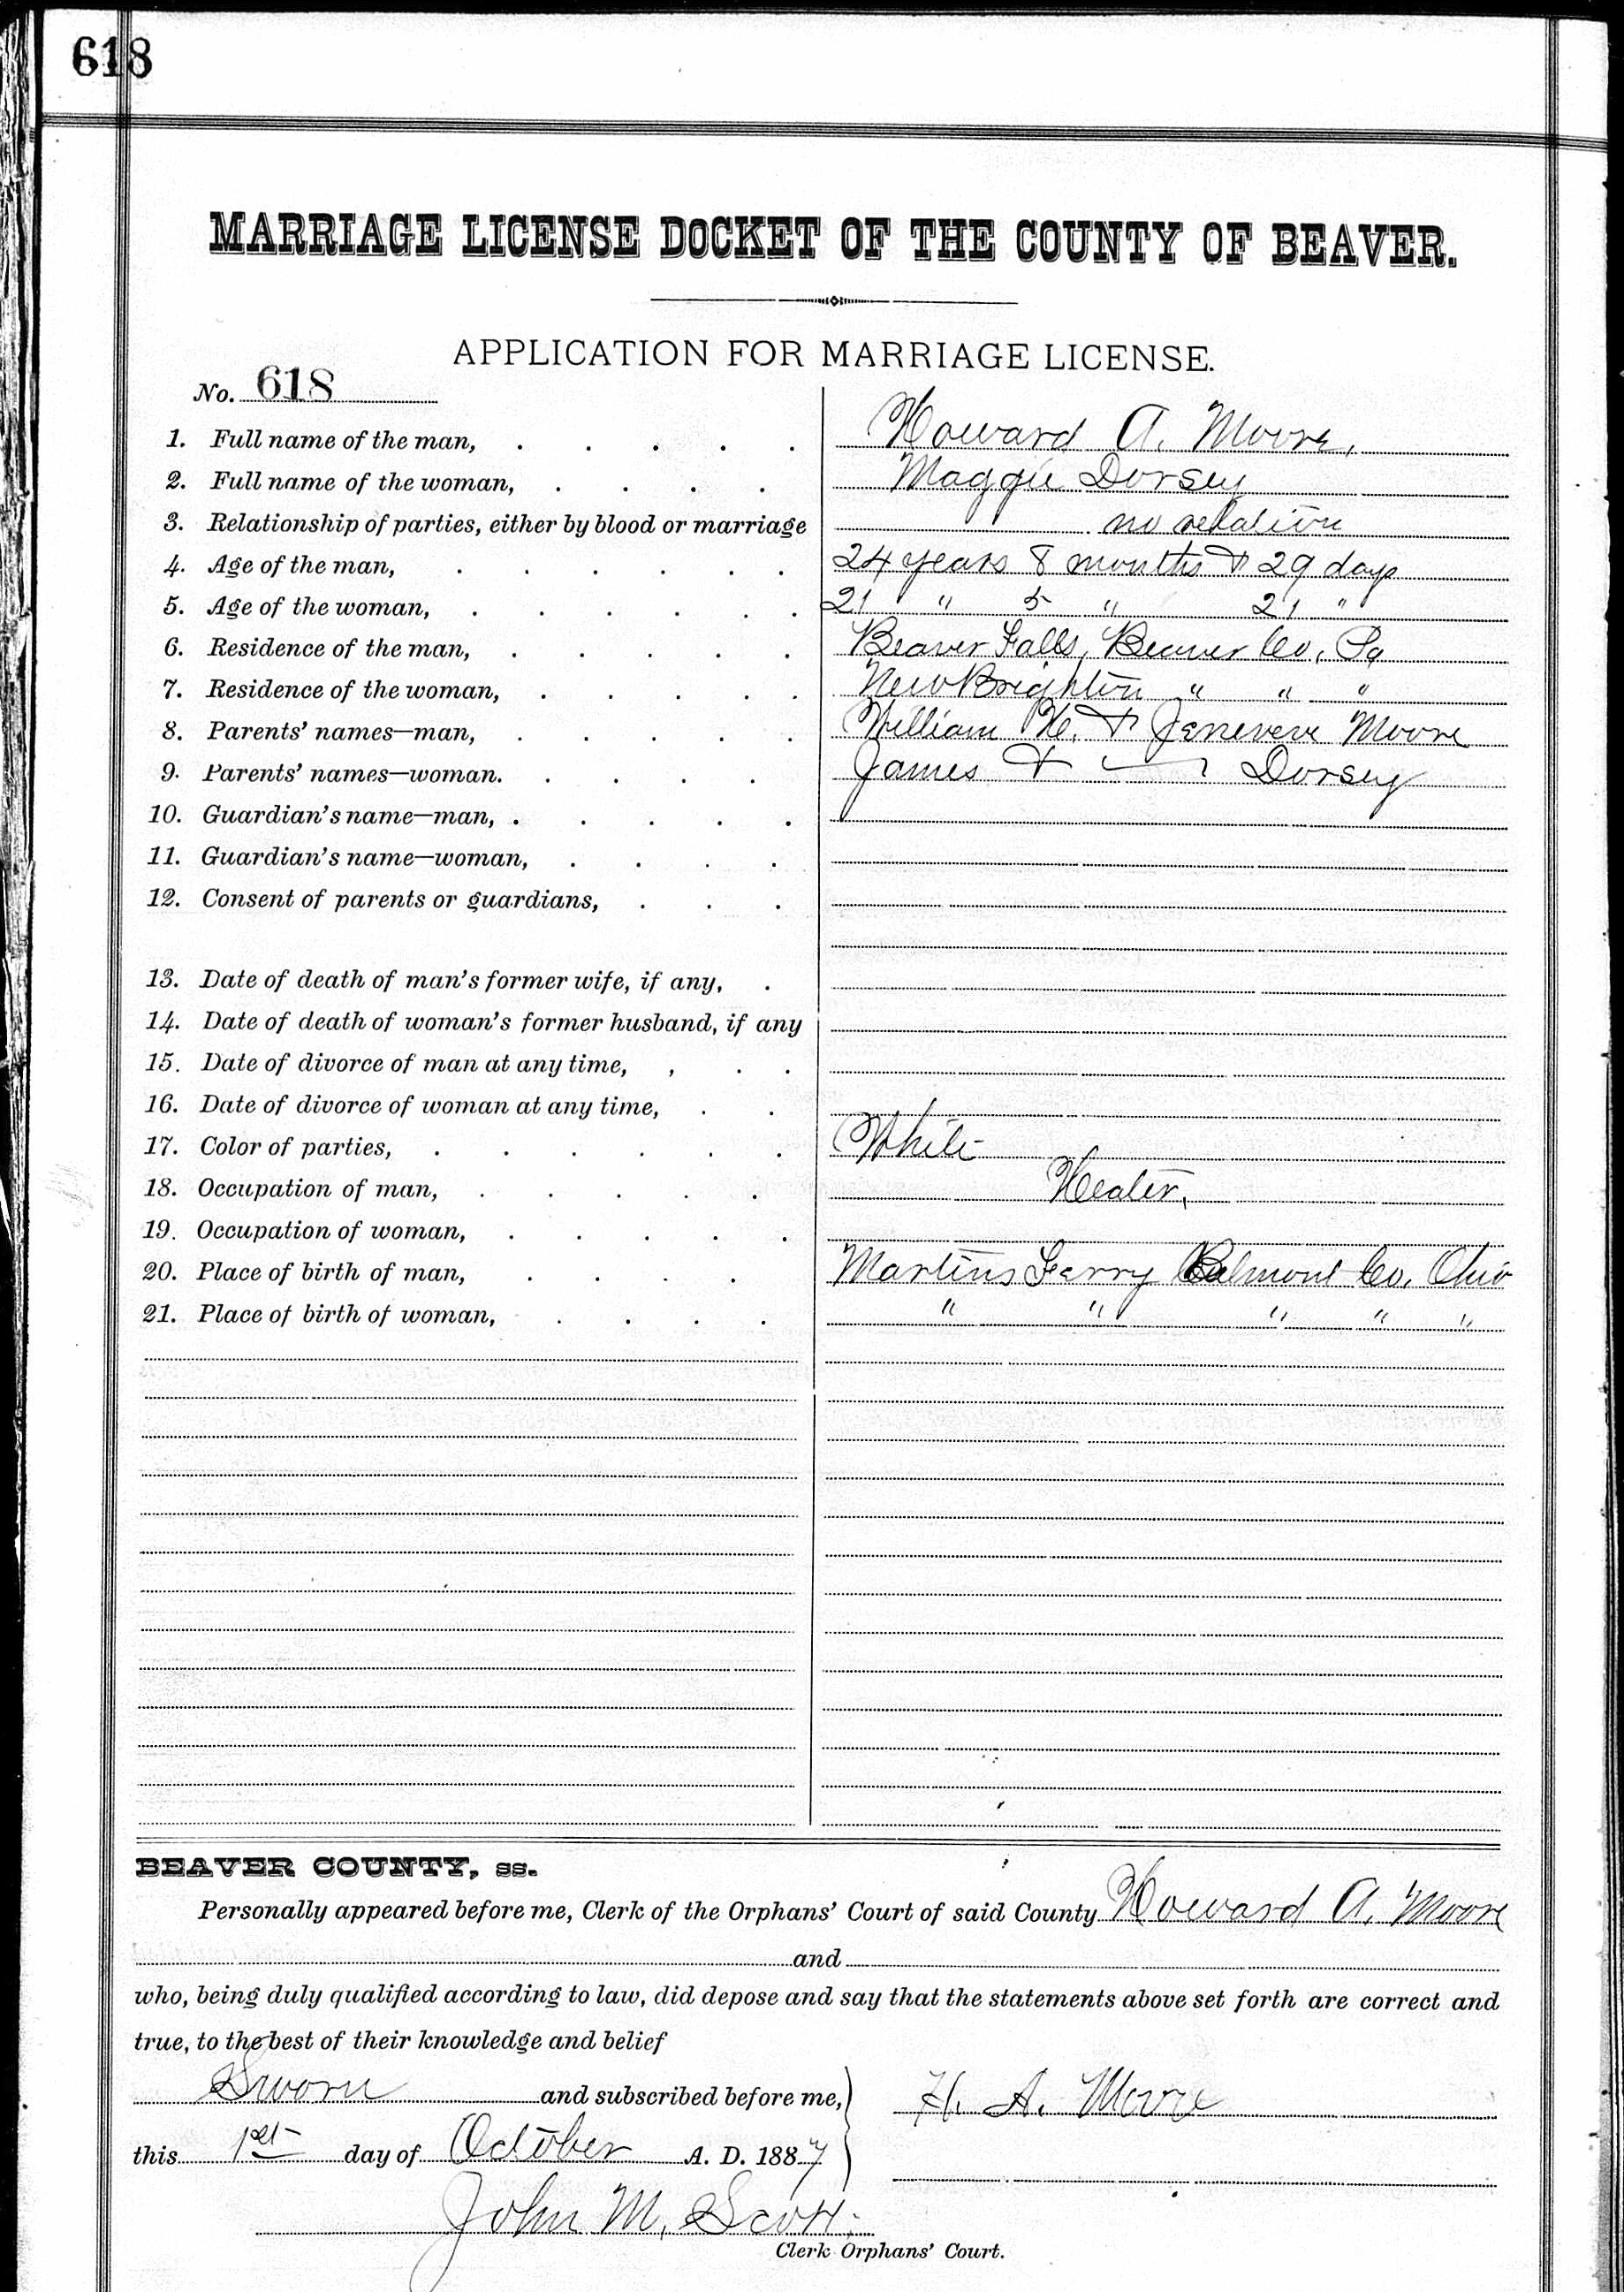 618
MARRIAGE LICENSE DOCKET OF THE COUNTY OF BEAVER.
APPLICATION FOR MARRIAGE LICENSE.
No. 618
1. Full name of the man, Howard A. Moore,
2. Full name of the woman, Maggie Dorsey
3. Relationship of parties, either by blood or marriage no relation
4. Age of the man, 24 years 8 months & 29 days
5. Age of the woman, 21 " 5 " 21 "
6. Residence of the man, Beaver Falls, Beaver Co., Pa
7. Residence of the woman, New Brighton " " "
8. Parents' names—man, William H. & Jenevere Moore
9. Parents' names—woman. James & — Dorsey
10. Guardian's name—man,
11. Guardian's name—woman,
12. Consent of parents or guardians,
13. Date of death of man's former wife, if any,
14. Date of death of woman's former husband, if any
15. Date of divorce of man at any time,
16. Date of divorce of woman at any time,
17. Color of parties, White
18. Occupation of man, Heater,
19. Occupation of woman,
20. Place of birth of man, Martins Ferry Belmont Co. Ohio
21. Place of birth of woman, " " " " "
BEAVER COUNTY, ss.
Personally appeared before me, Clerk of the Orphans' Court of said County Howard A. Moore
and
who, being duly qualified according to law, did depose and say that the statements above set forth are correct and
true, to the best of their knowledge and belief
Sworn and subscribed before me, H. A. Moore
this 1st day of October A. D. 1887
John M. Scott.
Clerk Orphans' Court.